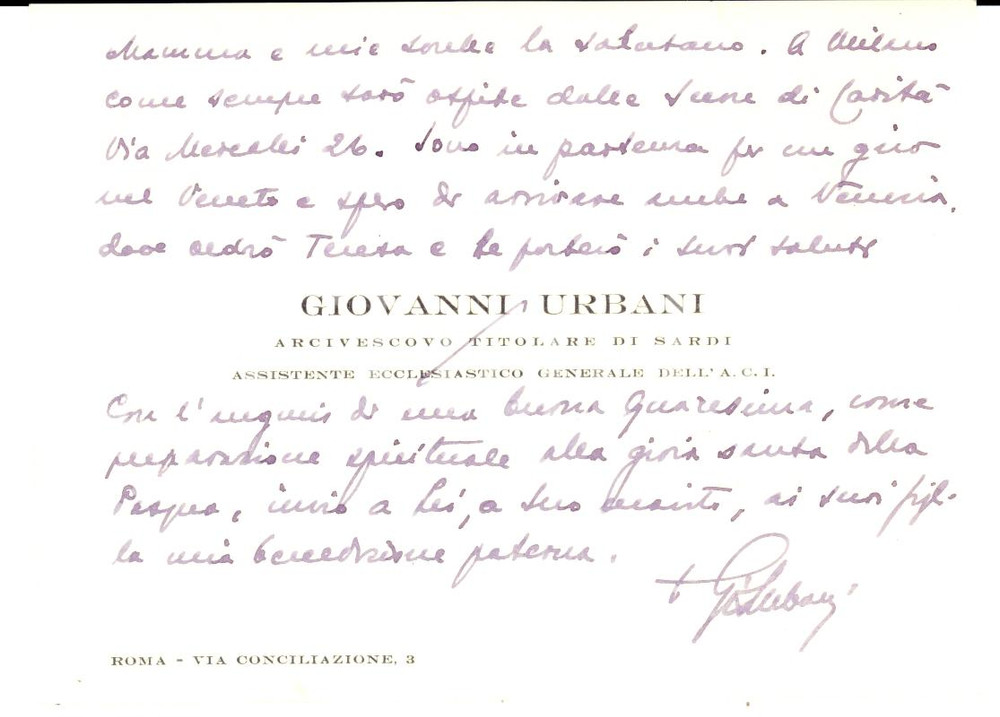 Mamma e mie sorelle la salutano. A Milano
come sempre sarò ospite delle Suore di Carità
Via Mercalli 26. Sono in partenza per un giro
nel Veneto e spero di arrivare anche a Venezia,
dove vedrò Teresa e le porterò i suoi saluti
GIOVANNI URBANI
ARCIVESCOVO TITOLARE DI SARDI
ASSISTENTE ECCLESIASTICO GENERALE DELL'A.C.I.
Con l'augurio di una buona Quaresima, come
preparazione spirituale alla gioia santa della
Pasqua, invio a Lei, a Suo marito, ai suoi figli
la mia benedizione paterna.
+ G. Urbani
ROMA - VIA CONCILIAZIONE, 3